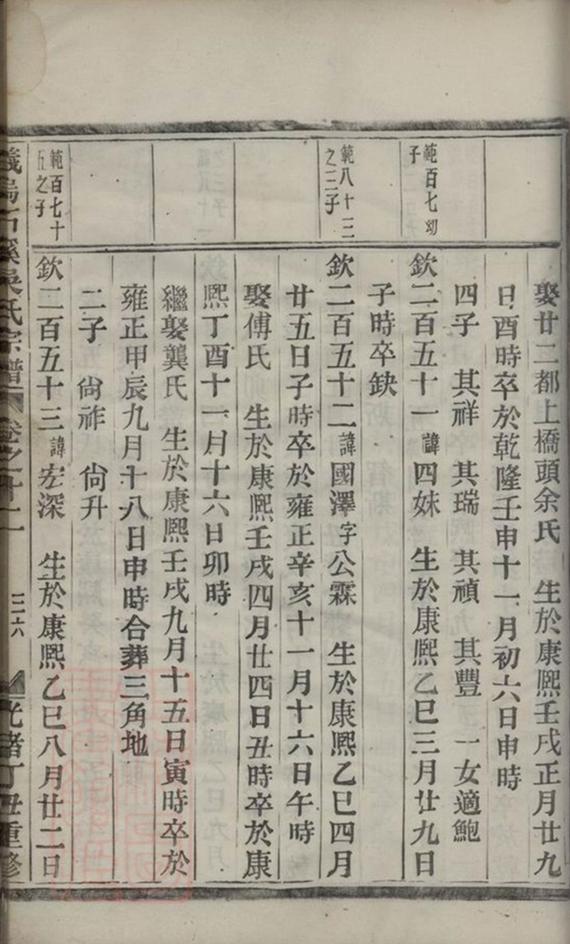 娶廿二都上橋頭余氏　生於康熙壬戌正月廿九
日酉時卒於乾隆壬申十一月初六日申時
四子　其祥　其瑞　其禎　其豐　一女適鮑
範百七幼
子
欽二百五十一諱四妹　生於康熙乙巳三月廿九日
子時卒缺
範八十三
之三子
欽二百五十二諱國澤字公霖　生於康熙乙巳四月
廿五日子時卒於雍正辛亥十一月十六日午時
娶傅氏　生於康熙壬戌四月廿四日丑時卒於康
熙丁酉十一月十六日卯時
繼娶龔氏　生於康熙壬戌九月十五日寅時卒於
雍正甲辰九月十八日申時合葬三角地
二子　尙祚　尙升
範百七十
五之子
欽二百五十三諱宏深　生於康熙乙巳八月廿二日
吳氏宗譜　卷之十二　三六　光緒丁丑重修